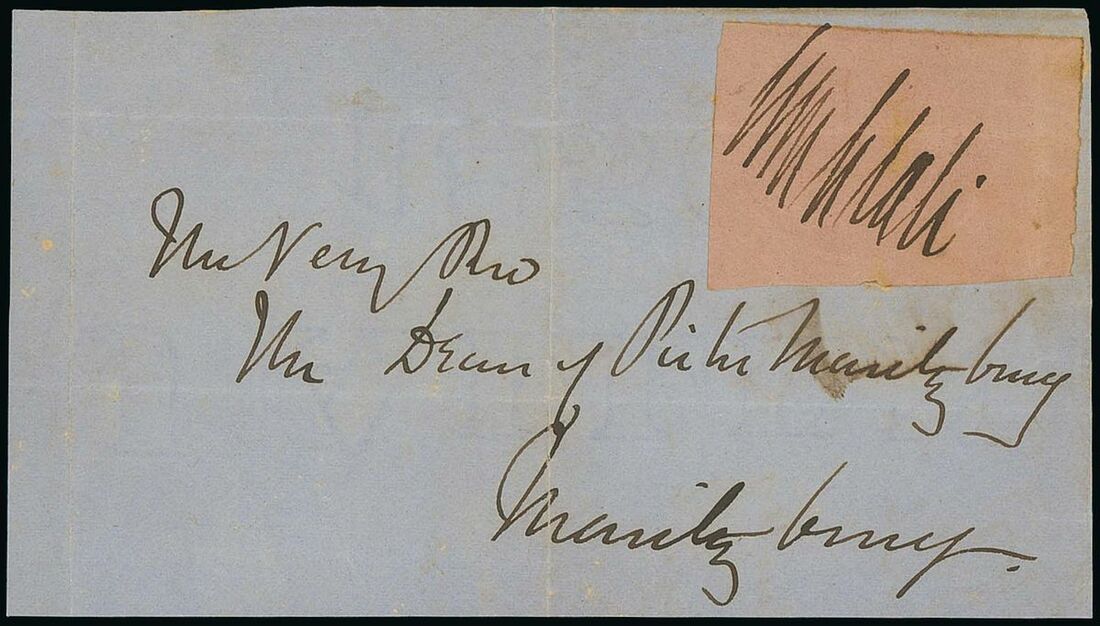 Umhlali
The Very Rev
The Dean of Pieter Maritzburg
Maritzburg.